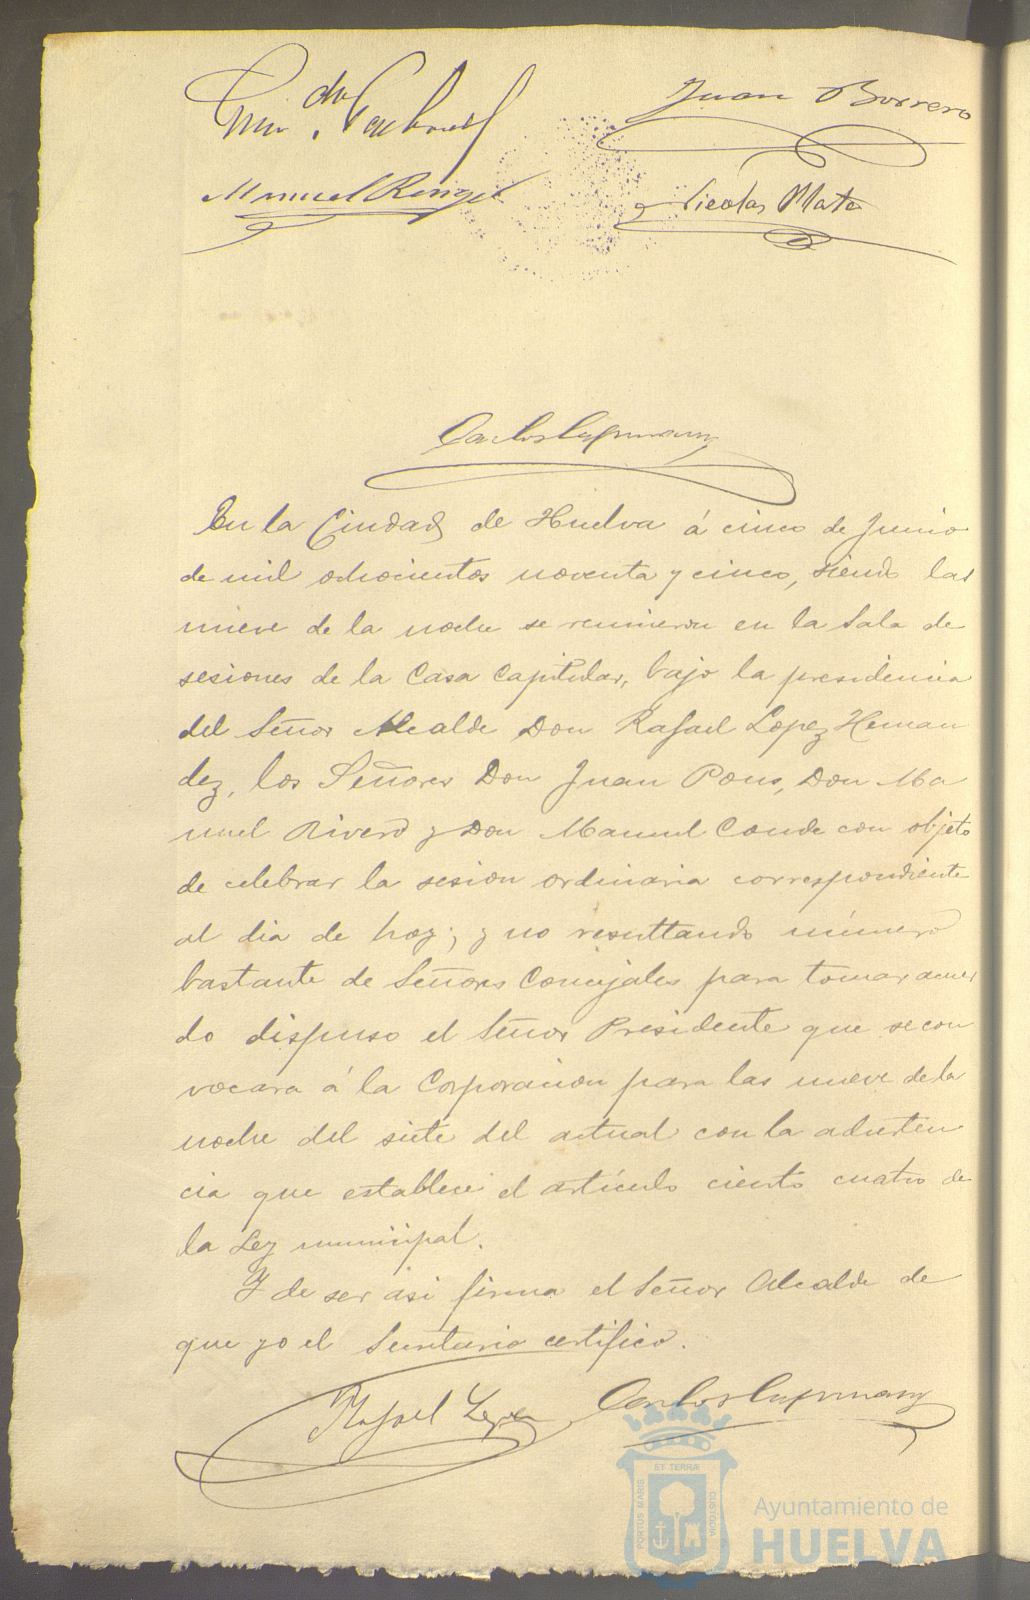 Juan Borrero
Manuel Rengel
Nicolas Mata
En la Ciudad de Huelva á cinco de Junio
de mil ochocientos noventa y cinco, siendo las
nueve de la noche se reunieron en la Sala de
sesiones de la Casa Capitular, bajo la presidencia
del Señor Alcalde Don Rafael Lopez Hernan
dez, los Señores Don Juan Pons, Don Ma
nuel Rivero y Don Manuel Conde con objeto
de celebrar la sesion ordinaria correspondiente
al dia de hoy; y no resultando número
bastante de Señores Concejales para tomar acuer
do dispuso el Señor Presidente que se con
vocara á la Corporacion para las nueve de la
noche del siete del actual con la adverten
cia que establece el artículo ciento cuatro de
la Ley municipal.
Y de ser asi firma el Señor Alcalde de
que yo el Secretario certifico.
Rafael Lopez
Carlos
PORTUS MARIS
ET TERRÆ
CUSTODIA
Ayuntamiento de
HUELVA